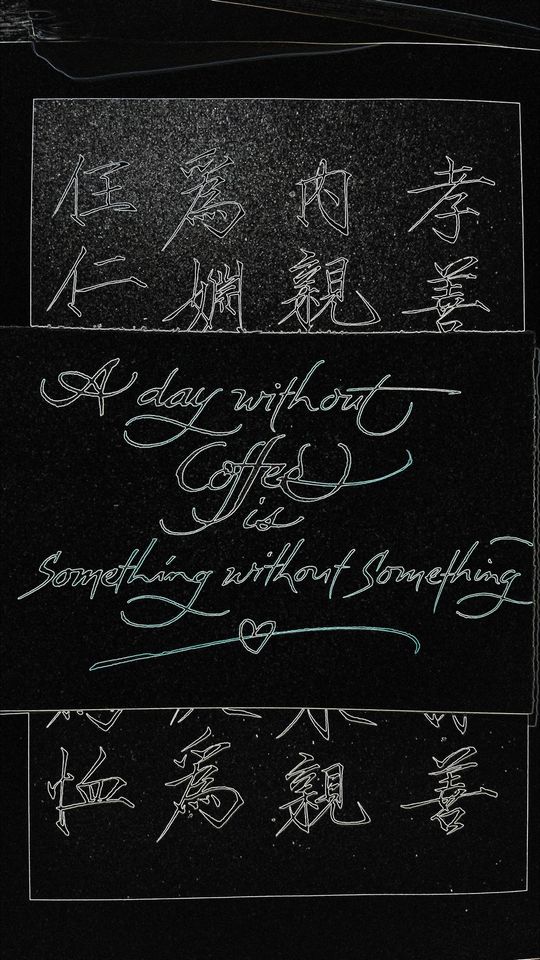 孝善
内親
爲婣
任仁
A day without
Coffee
is
Something without Something
善
親
爲
恤